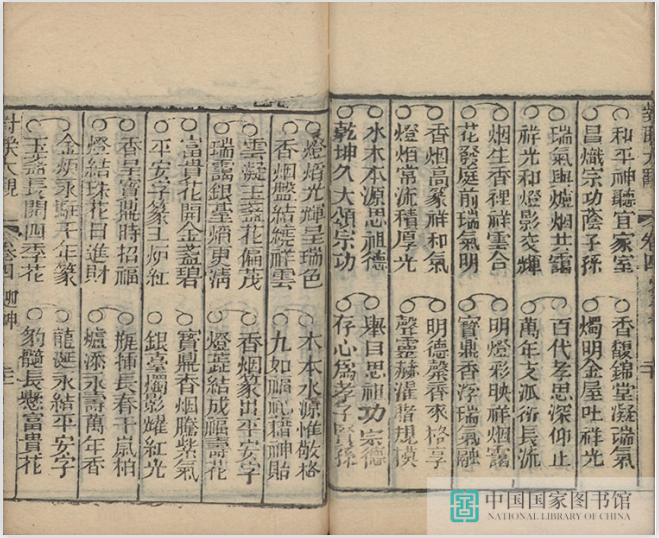 和平神聽宜家室
昌熾宗功蔭子孫
瑞氣與爐烟共靄
祥光和燈影交輝
烟生香裡祥雲合
花發庭前瑞氣明
香烟高篆祥和氣
燈焰常流積厚光
水木本源思祖德
乾坤久大頌宗功
香馥錦堂凝瑞氣
燭明金屋吐祥光
百代孝思深仰止
萬年支派衍長流
明燈彩映祥烟靄
寳鼎香浮瑞氣融
明德馨香來格享
聲靈赫濯睹規模
舉目思祖功宗德
存心為孝子賢孫
燈焰光輝呈瑞色
香烟盤結繞祥雲
雲凝玉盞花偏茂
瑞靄銀臺焰更清
富貴花開金盞碧
平安字篆玉炉紅
香呈寶鼎時招福
燈結珠花日進財
金炉永駐千年篆
玉盞長開四季花
木本水源惟敬格
九如福祉藉神貽
香烟篆出平安字
燈蕋結成福壽花
寳鼎香烟騰紫氣
銀臺燭影耀紅光
瓶插長春千歲柏
爐添永壽萬年香
龍涎永結平安字
豹髓長懸富貴花
對聯大觀 卷四 神
中国国家图书馆
NATIONAL LIBRARY OF CHINA